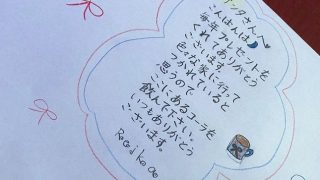 サンタさんへ
こんばんは
毎年プレゼントを
くれてありがとう
ございます
色々な家に行って
つかれていると
思うので
ここにあるコーラを
飲んで下さい。
いつもありがとう
ございます。